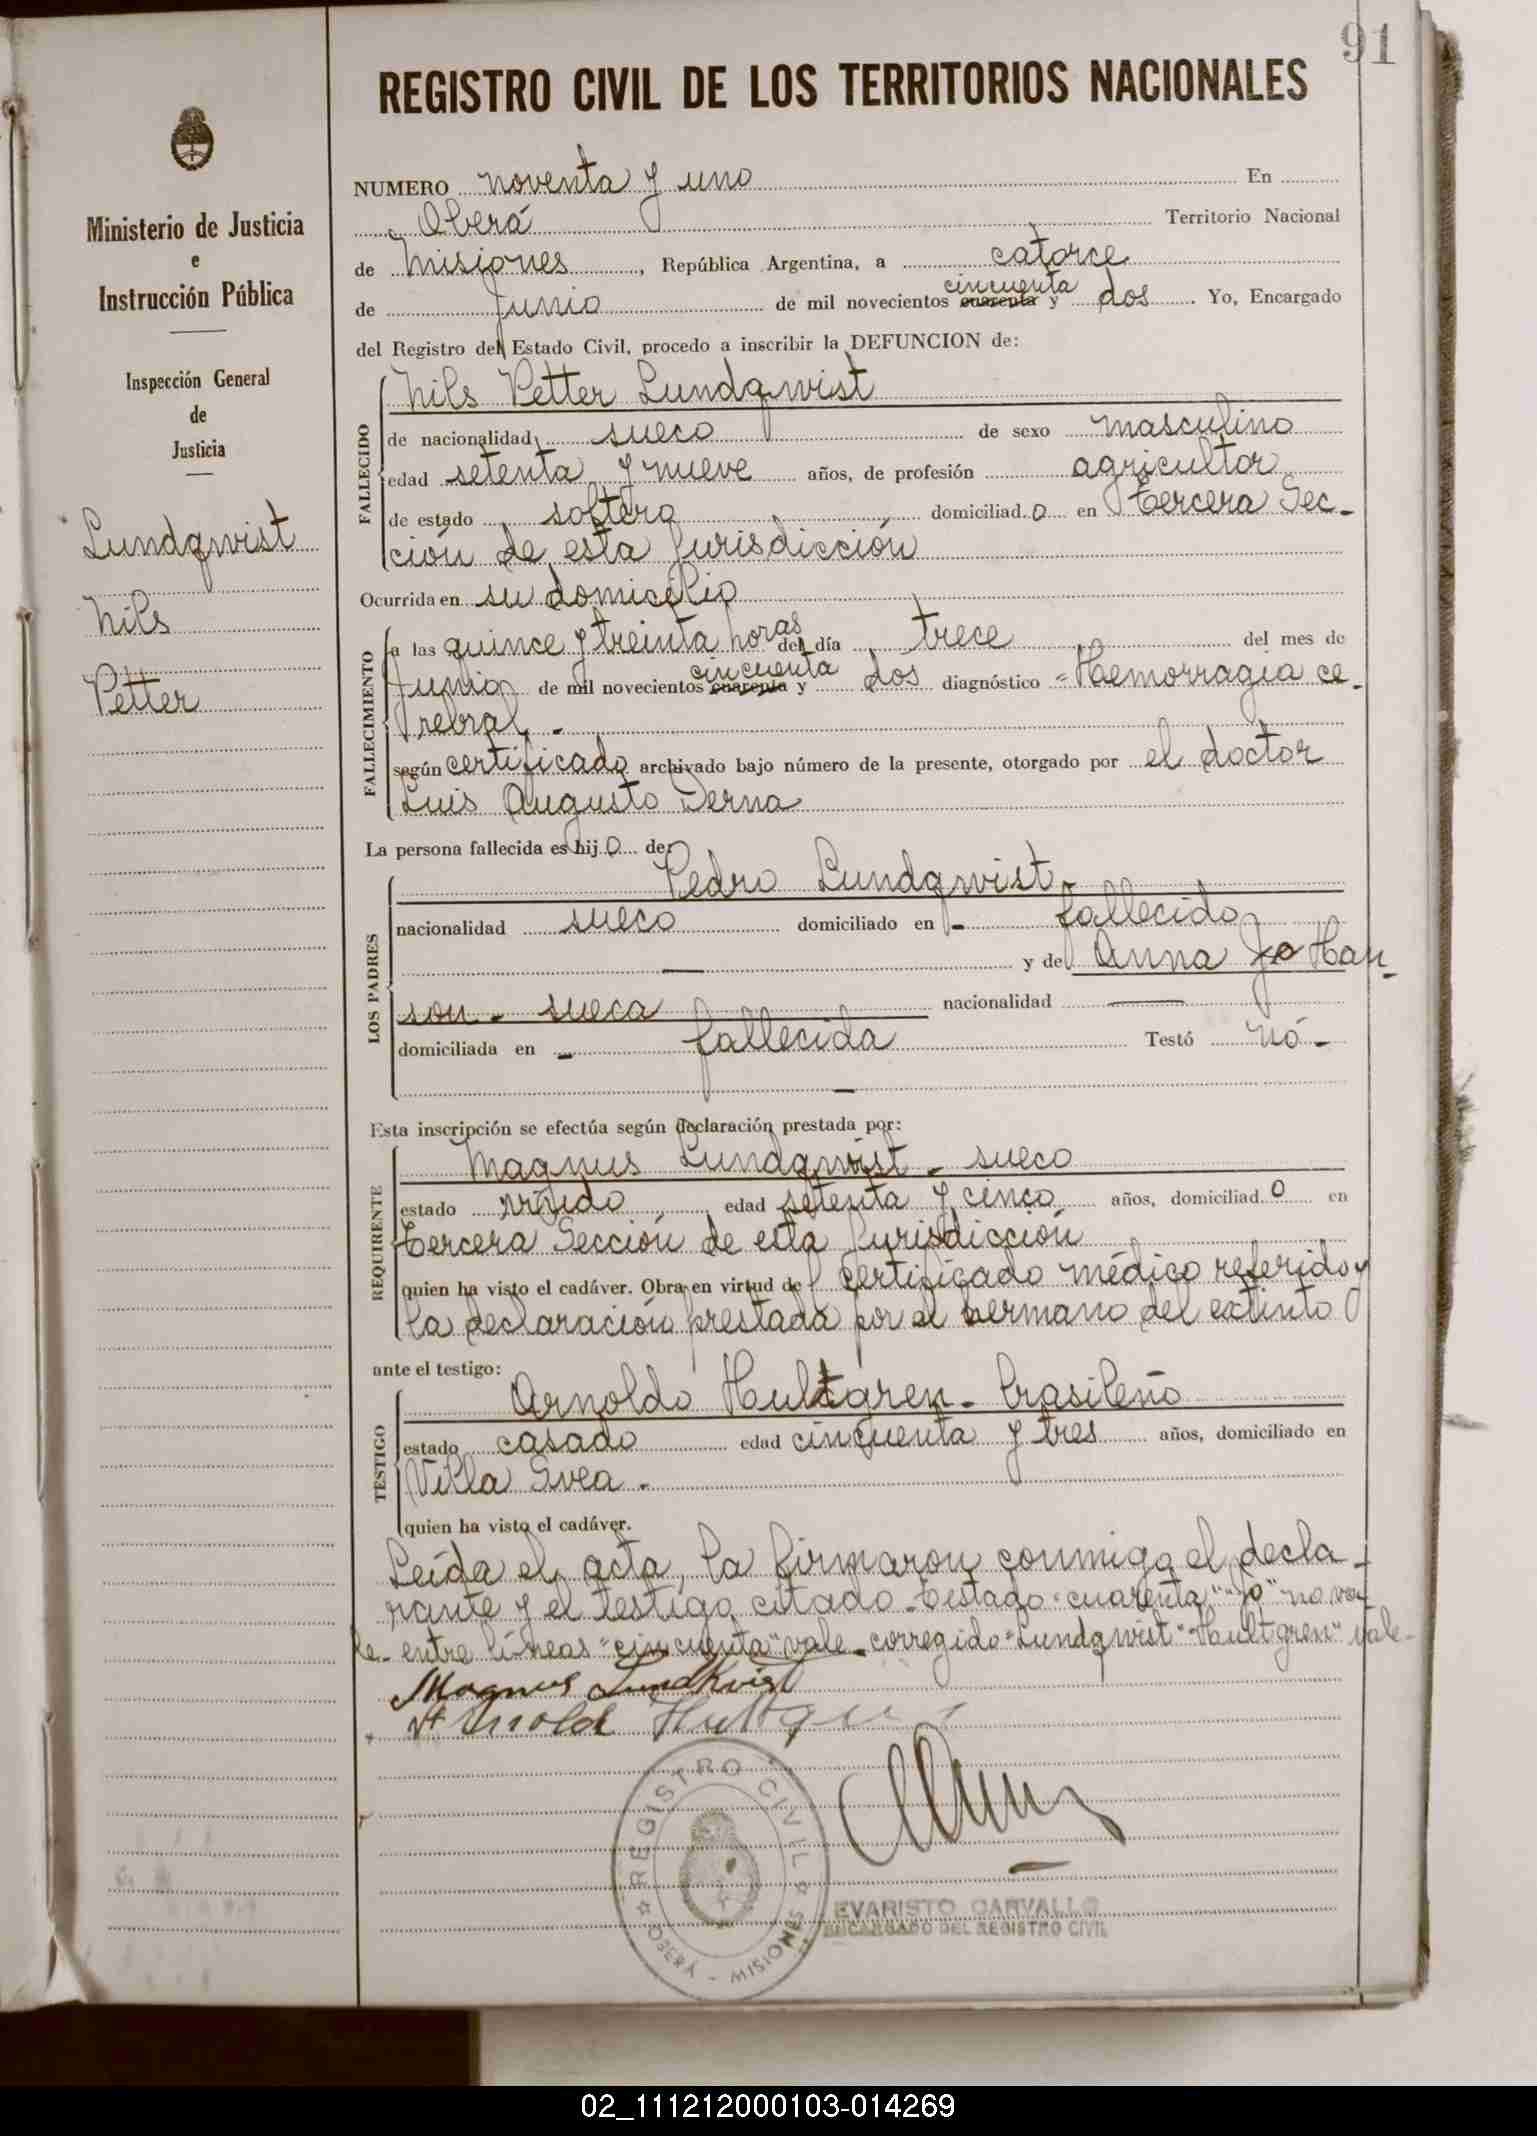 91
REGISTRO CIVIL DE LOS TERRITORIOS NACIONALES
Ministerio de Justicia
e
Instrucción Pública
Inspección General
de
Justicia
Lundqwist
Nils
Petter
NUMERO noventa y uno En
Oberá Territorio Nacional
de Misiones, República Argentina, a catorce
de Junio de mil novecientos cuarenta cincuenta y dos. Yo, Encargado
del Registro del Estado Civil, procedo a inscribir la DEFUNCION de:
FALLECIDO
Nils Petter Lundqwist
de nacionalidad sueco de sexo masculino
edad setenta y nueve años, de profesión agricultor
de estado soltero domiciliad o en Tercera Sec-
ción de esta Jurisdicción
Ocurrida en su domicilio
FALLECIMIENTO
a las quince y treinta horas del día trece del mes de
Junio de mil novecientos cuarenta cincuenta y dos diagnóstico =Hemorragia ce-
rebral.-
según certificado archivado bajo número de la presente, otorgado por el doctor
Luis Augusto Derna
La persona fallecida es hij o de:
LOS PADRES
Pedro Lundqwist-
nacionalidad sueco domiciliado en - fallecido
— y de Anna Jo Han-
son - sueca nacionalidad —
domiciliada en - fallecida Testó nó-
—
Esta inscripción se efectúa según declaración prestada por:
REQUIRENTE
Magnus Lundqwist - sueco
estado viudo edad setenta y cinco años, domiciliad o en
Tercera Sección de esta Jurisdicción
quien ha visto el cadáver. Obra en virtud de certificado médico referido y
la declaración prestada por el hermano del extinto
ante el testigo:
TESTIGO
Arnoldo Hultgren - brasileño
estado casado edad cincuenta y tres años, domiciliado en
Villa Svea.-
quien ha visto el cadáver.
Leída el acta, la firmaron conmigo el decla-
rante y el testigo citado - testado "cuarenta" "Jo" no va-
le - entre líneas "cincuenta" vale - corregido "Lundqwist" "Hultgren" vale-
Magnus Lundkvist
Arnold Hultgren
REGISTRO CIVIL
OBERÁ - MISIONES
EVARISTO CARVALLO
ENCARGADO DEL REGISTRO CIVIL
02_111212000103-014269